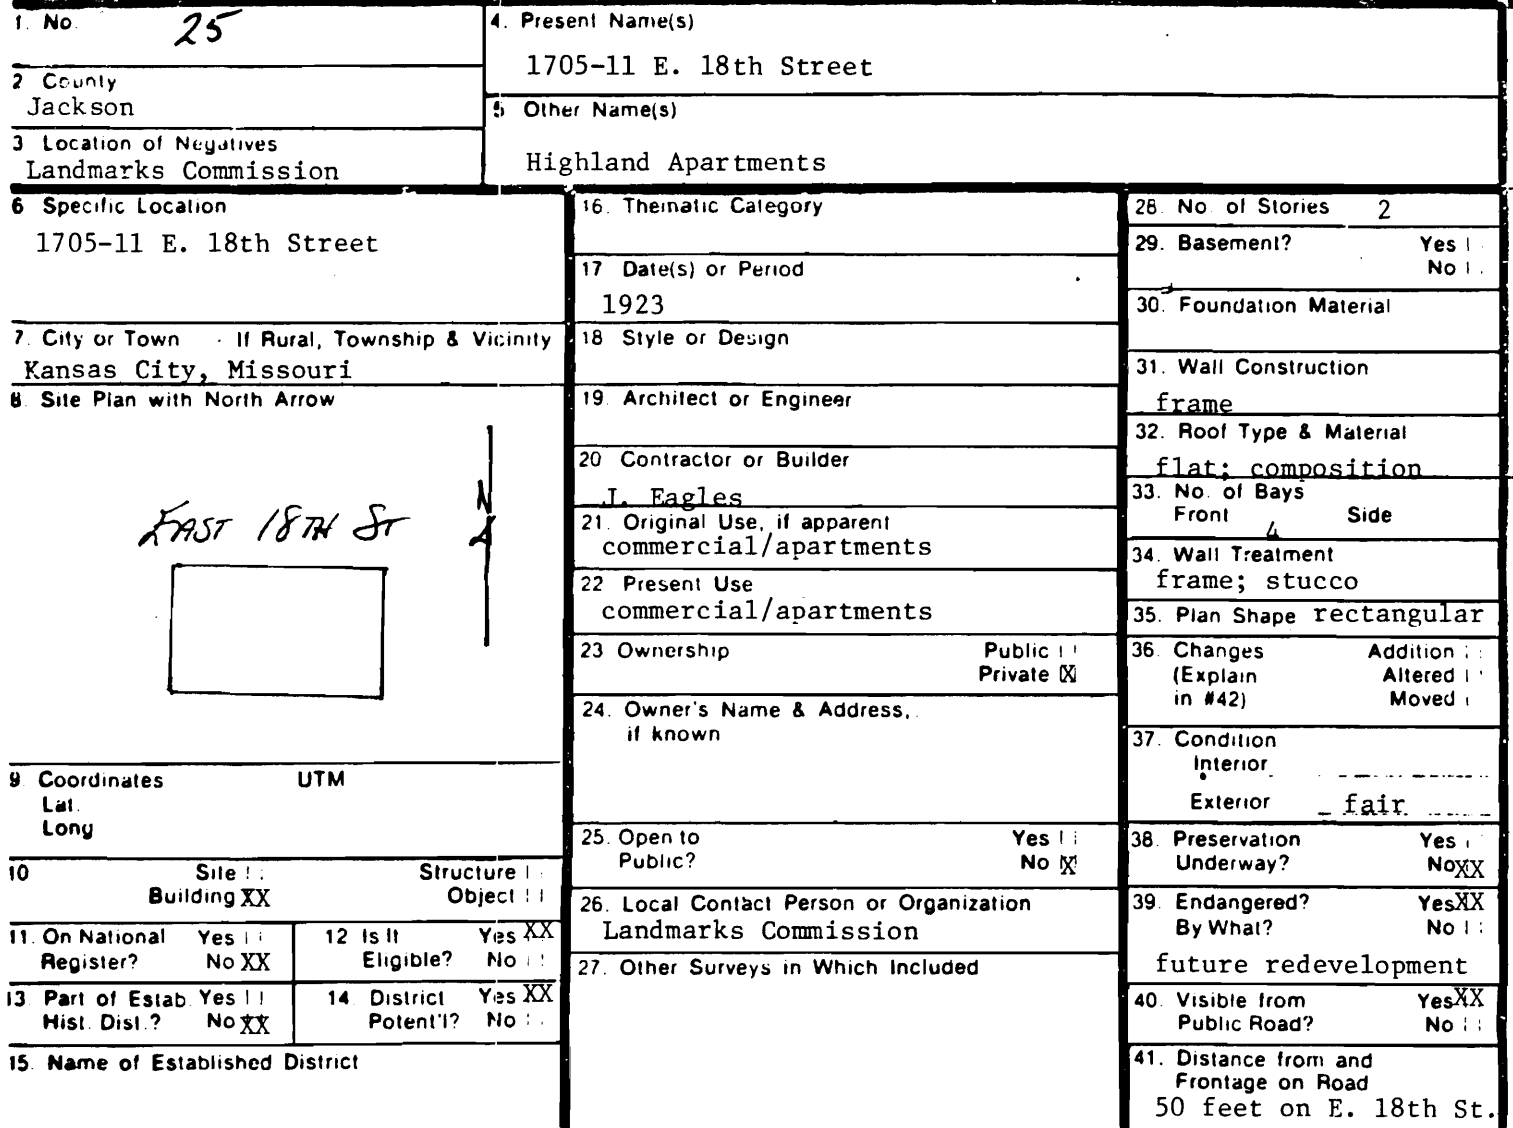 1. No. 25
2 County
Jackson
3 Location of Negatives
Landmarks Commission
4. Present Name(s)
1705-11 E. 18th Street
5 Other Name(s)
Highland Apartments
6 Specific Location
1705-11 E. 18th Street
7. City or Town If Rural, Township & Vicinity
Kansas City, Missouri
8. Site Plan with North Arrow
N
EAST 18TH ST
9. Coordinates UTM
Lat.
Long
10 Site Structure
Building XX Object
11. On National Yes
Register? No XX
12 Is It Yes XX
Eligible? No
13. Part of Estab. Yes
Hist. Dist.? No XX
14. District Yes XX
Potent'l? No
15. Name of Established District
16. Thematic Category
17 Date(s) or Period
1923
18 Style or Design
19. Architect or Engineer
20 Contractor or Builder
J. Eagles
21. Original Use, if apparent
commercial/apartments
22 Present Use
commercial/apartments
23 Ownership Public
Private X
24. Owner's Name & Address,
if known
25. Open to Yes
Public? No X
26. Local Contact Person or Organization
Landmarks Commission
27. Other Surveys in Which Included
28. No. of Stories 2
29. Basement? Yes
No
30. Foundation Material
31. Wall Construction
frame
32. Roof Type & Material
flat; composition
33. No. of Bays
Front 4 Side
34. Wall Treatment
frame; stucco
35. Plan Shape rectangular
36. Changes Addition
(Explain Altered
in #42) Moved
37. Condition
Interior
Exterior fair
38. Preservation Yes
Underway? No XX
39. Endangered? Yes XX
By What? No
future redevelopment
40. Visible from Yes XX
Public Road? No
41. Distance from and
Frontage on Road
50 feet on E. 18th St.